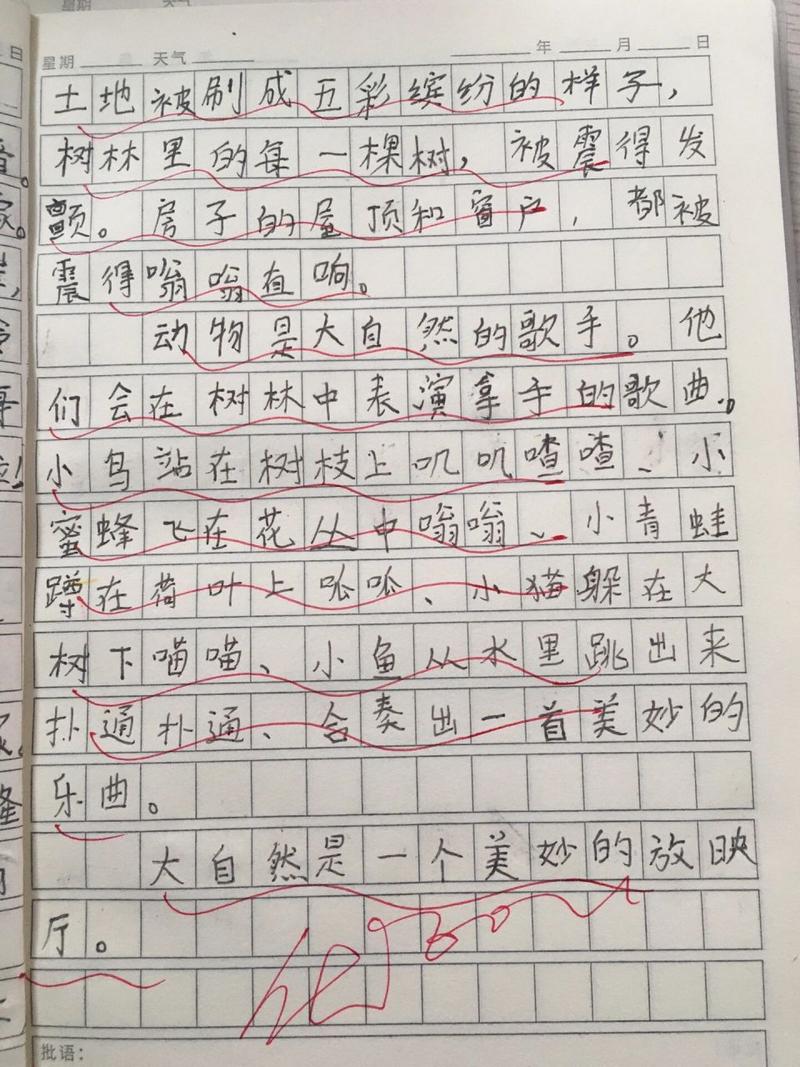 星期 天气 年 月 日
土地被刷成五彩缤纷的样子，
树林里的每一棵树，被震得发
颤。房子的屋顶和窗户，都被
震得嗡嗡直响。
动物是大自然的歌手。他
们会在树林中表演拿手的歌曲。
小鸟站在树枝上叽叽喳喳、小
蜜蜂飞在花丛中嗡嗡、小青蛙
蹲在荷叶上呱呱、小猫躲在大
树下喵喵、小鱼从水里跳出来
扑通扑通、合奏出一首美妙的
乐曲。
大自然是一个美妙的放映
厅。
批语：